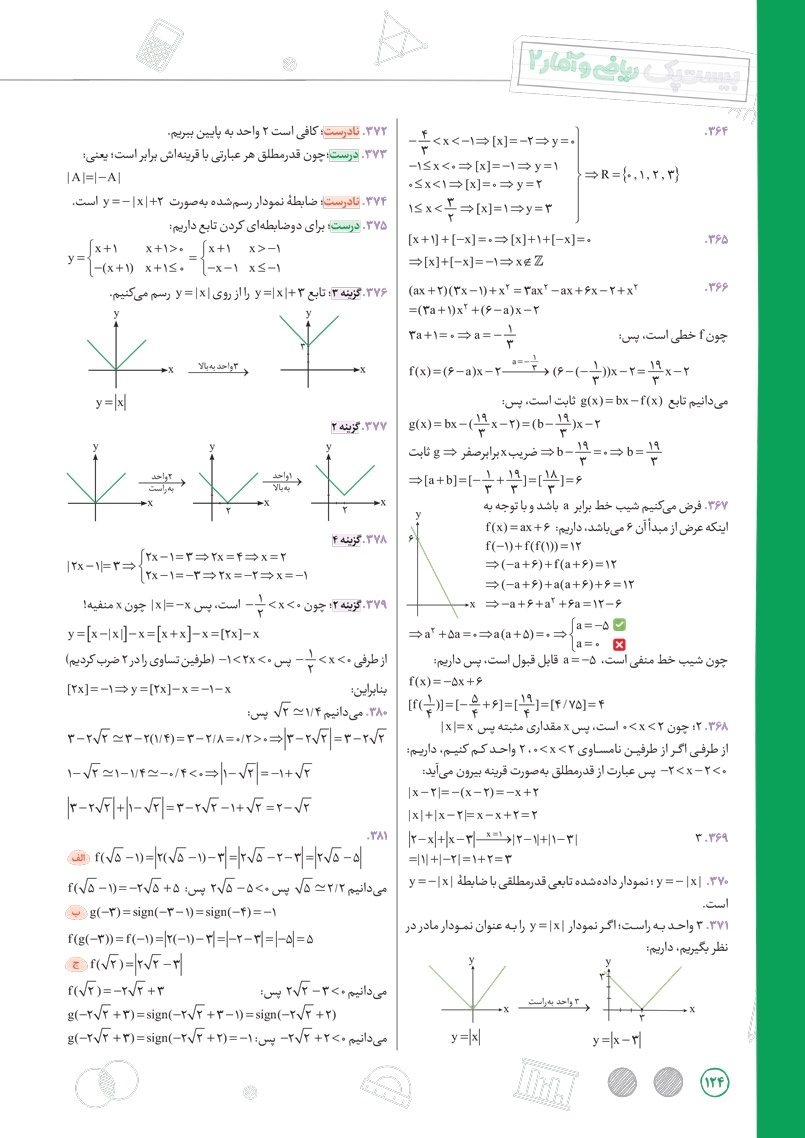 بیست‌پک ریاضی و آمار ۲
.۳۶۴
-۴/۳ < x < -۱ ⇒ [x] = -۲ ⇒ y = ۰
-۱ ≤ x < ۰ ⇒ [x] = -۱ ⇒ y = ۱
۰ ≤ x < ۱ ⇒ [x] = ۰ ⇒ y = ۲
۱ ≤ x < ۳/۲ ⇒ [x] = ۱ ⇒ y = ۳
⇒ R = {۰, ۱, ۲, ۳}
.۳۶۵ [x+۱] + [-x] = ۰ ⇒ [x] + ۱ + [-x] = ۰
⇒ [x] + [-x] = -۱ ⇒ x ∉ ℤ
.۳۶۶ (ax+۲)(۳x-۱) + x² = ۳ax² - ax + ۶x - ۲ + x²
= (۳a+۱)x² + (۶-a)x - ۲
چون f خطی است، پس: ۳a+۱ = ۰ ⇒ a = -۱/۳
f(x) = (۶-a)x - ۲ —a=-۱/۳→ (۶-(-۱/۳))x - ۲ = ۱۹/۳ x - ۲
می‌دانیم تابع g(x) = bx - f(x) ثابت است، پس:
g(x) = bx - (۱۹/۳ x - ۲) = (b - ۱۹/۳)x - ۲
ثابت g ⇒ ضریب x برابر صفر ⇒ b - ۱۹/۳ = ۰ ⇒ b = ۱۹/۳
⇒ [a+b] = [-۱/۳ + ۱۹/۳] = [۱۸/۳] = ۶
.۳۶۷ فرض می‌کنیم شیب خط برابر a باشد و با توجه به
اینکه عرض از مبدأ آن ۶ می‌باشد، داریم: f(x) = ax + ۶
y
۶
x
f(-۱) + f(f(۱)) = ۱۲
⇒ (-a+۶) + f(a+۶) = ۱۲
⇒ (-a+۶) + a(a+۶) + ۶ = ۱۲
⇒ -a + ۶ + a² + ۶a = ۱۲ - ۶
⇒ a² + ۵a = ۰ ⇒ a(a+۵) = ۰ ⇒ { a = -۵ ✓
a = ۰ ✗
چون شیب خط منفی است، a = -۵ قابل قبول است، پس داریم:
f(x) = -۵x + ۶
[f(۱/۴)] = [-۵/۴ + ۶] = [۱۹/۴] = [۴/۷۵] = ۴
.۳۶۸ ۲؛ چون ۰ < x < ۲ است، پس x مقداری مثبته پس |x| = x
از طرفی اگر از طرفین نامساوی ۰ < x < ۲، ۲ واحد کم کنیم، داریم:
-۲ < x - ۲ < ۰ پس عبارت از قدرمطلق به‌صورت قرینه بیرون می‌آید:
|x-۲| = -(x-۲) = -x + ۲
|x| + |x-۲| = x - x + ۲ = ۲
.۳۶۹ ۳ |۲-x| + |x-۳| —x=۱→ |۲-۱| + |۱-۳|
= |۱| + |-۲| = ۱ + ۲ = ۳
.۳۷۰ y = -|x|؛ نمودار داده‌شده تابعی قدرمطلقی با ضابطهٔ y = -|x|
است.
.۳۷۱ ۳ واحد به راست؛ اگر نمودار y = |x| را به عنوان نمودار مادر در
نظر بگیریم، داریم:
y
x
۳ واحد به‌راست
y
۳
۳
x
y = |x|
y = |x-۳|
.۳۷۲ نادرست؛ کافی است ۲ واحد به پایین ببریم.
.۳۷۳ درست؛ چون قدرمطلق هر عبارتی با قرینه‌اش برابر است؛ یعنی:
|A| = |-A|
.۳۷۴ نادرست؛ ضابطهٔ نمودار رسم‌شده به‌صورت y = -|x| + ۲ است.
.۳۷۵ درست؛ برای دوضابطه‌ای کردن تابع داریم:
y = { x+۱ x+۱>۰ = { x+۱ x>-۱
-(x+۱) x+۱≤۰ -x-۱ x≤-۱
.۳۷۶ گزینه ۳؛ تابع y = |x| + ۳ را از روی y = |x| رسم می‌کنیم.
y
x
۳ واحد به‌بالا
y
۳
x
y = |x|
.۳۷۷ گزینه ۲
y
x
۲ واحد
به‌راست
y
۲
x
۱ واحد
به‌بالا
y
۲
x
.۳۷۸ گزینه ۴
|۲x-۱| = ۳ ⇒ { ۲x-۱ = ۳ ⇒ ۲x = ۴ ⇒ x = ۲
۲x-۱ = -۳ ⇒ ۲x = -۲ ⇒ x = -۱
.۳۷۹ گزینه ۲؛ چون -۱/۲ < x < ۰ است، پس |x| = -x چون x منفیه!
y = [x-|x|] - x = [x+x] - x = [۲x] - x
از طرفی -۱/۲ < x < ۰ پس -۱ < ۲x < ۰ (طرفین تساوی را در ۲ ضرب کردیم)
بنابراین: [۲x] = -۱ ⇒ y = [۲x] - x = -۱ - x
.۳۸۰ می‌دانیم √۲ ≃ ۱/۴ پس:
۳-۲√۲ ≃ ۳-۲(۱/۴) = ۳-۲/۸ = ۰/۲ > ۰ ⇒ |۳-۲√۲| = ۳-۲√۲
۱-√۲ ≃ ۱-۱/۴ ≃ -۰/۴ < ۰ ⇒ |۱-√۲| = -۱+√۲
|۳-۲√۲| + |۱-√۲| = ۳-۲√۲-۱+√۲ = ۲-√۲
.۳۸۱
الف f(√۵-۱) = |۲(√۵-۱)-۳| = |۲√۵-۲-۳| = |۲√۵-۵|
می‌دانیم √۵ ≃ ۲/۲ پس ۲√۵-۵ < ۰ پس: f(√۵-۱) = -۲√۵+۵
ب g(-۳) = sign(-۳-۱) = sign(-۴) = -۱
f(g(-۳)) = f(-۱) = |۲(-۱)-۳| = |-۲-۳| = |-۵| = ۵
ج f(√۲) = |۲√۲-۳|
می‌دانیم ۲√۲-۳ < ۰ پس: f(√۲) = -۲√۲+۳
g(-۲√۲+۳) = sign(-۲√۲+۳-۱) = sign(-۲√۲+۲)
می‌دانیم -۲√۲+۲ < ۰ پس: g(-۲√۲+۳) = sign(-۲√۲+۲) = -۱
۱۲۴